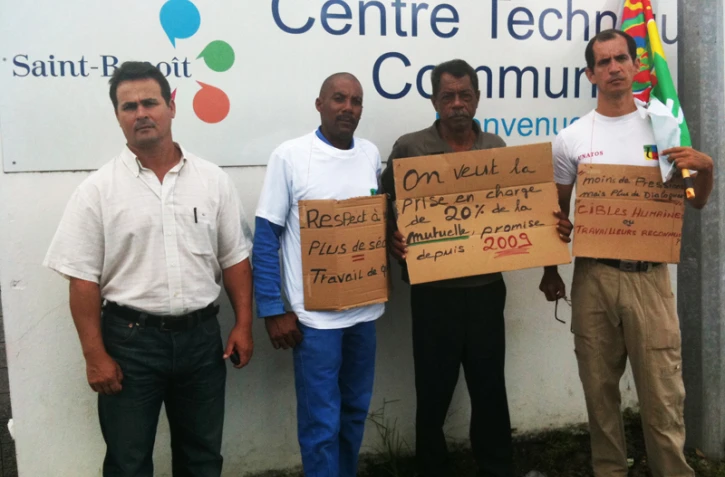 Saint-Benoît
Centre Technique
Commun
ienvenue
Respect à
PLUS de séc
Travail de q
On veut la
prise en charge
de 20% de la
mutuelle, promise
depuis 2009
moins de Pression
mais Plus de Dialogue
CIBLES HUMAINES
TRAVAILLEURS RECONNU